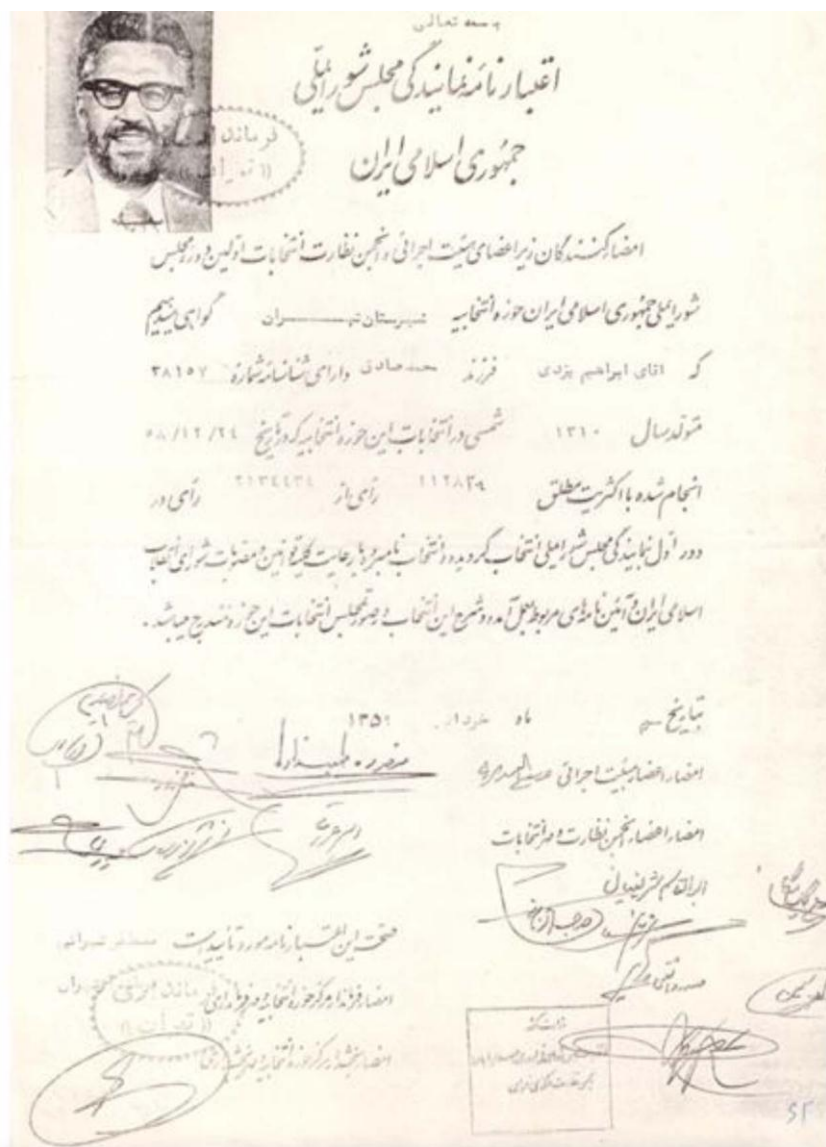 بسمه تعالی
اعتبارنامه نمایندگی مجلس شورایملی
جمهوری اسلامی ایران
فرماندا
((تهران))
امضاء کنندگان زیر اعضای هیئت اجرائی و انجمن نظارت انتخابات اولین دوره مجلس
شورایملی جمهوری اسلامی ایران حوزه انتخابیه شهرستان تهران گواهی میدهیم
که آقای ابراهیم یزدی فرزند محمد صادق دارای شناسنامه شماره ۳۸۱۵۷
متولد سال ۱۳۱۰ شمسی در انتخابات این حوزه انتخابیه که در تاریخ ۵۸/۱۲/۲۴
انجام شده با اکثریت مطلق رأی از ۲۱۳۴۴۳۴ رأی در
دور اول نمایندگی مجلس شورایملی انتخاب گردیده و انتخاب نامبرده با رعایت کلیه قوانین و مصوبات شورای انقلاب
اسلامی ایران و آئین نامه‌های مربوط بعمل آمده و شرح این انتخاب در صورتمجلس انتخابات این حوزه مندرج میباشد.
بتاریخ ماه خرداد ۱۳۵۹
امضاء اعضاء هیئت اجرائی
امضاء اعضاء انجمن نظارت در انتخابات
صحت این اعتبارنامه مورد تأیید است
امضاء فرماندار مرکز حوزه انتخابیه و مهر فرمانداری
((تهران))
امضاء بخشدار مرکز حوزه انتخابیه و مهر بخشداری